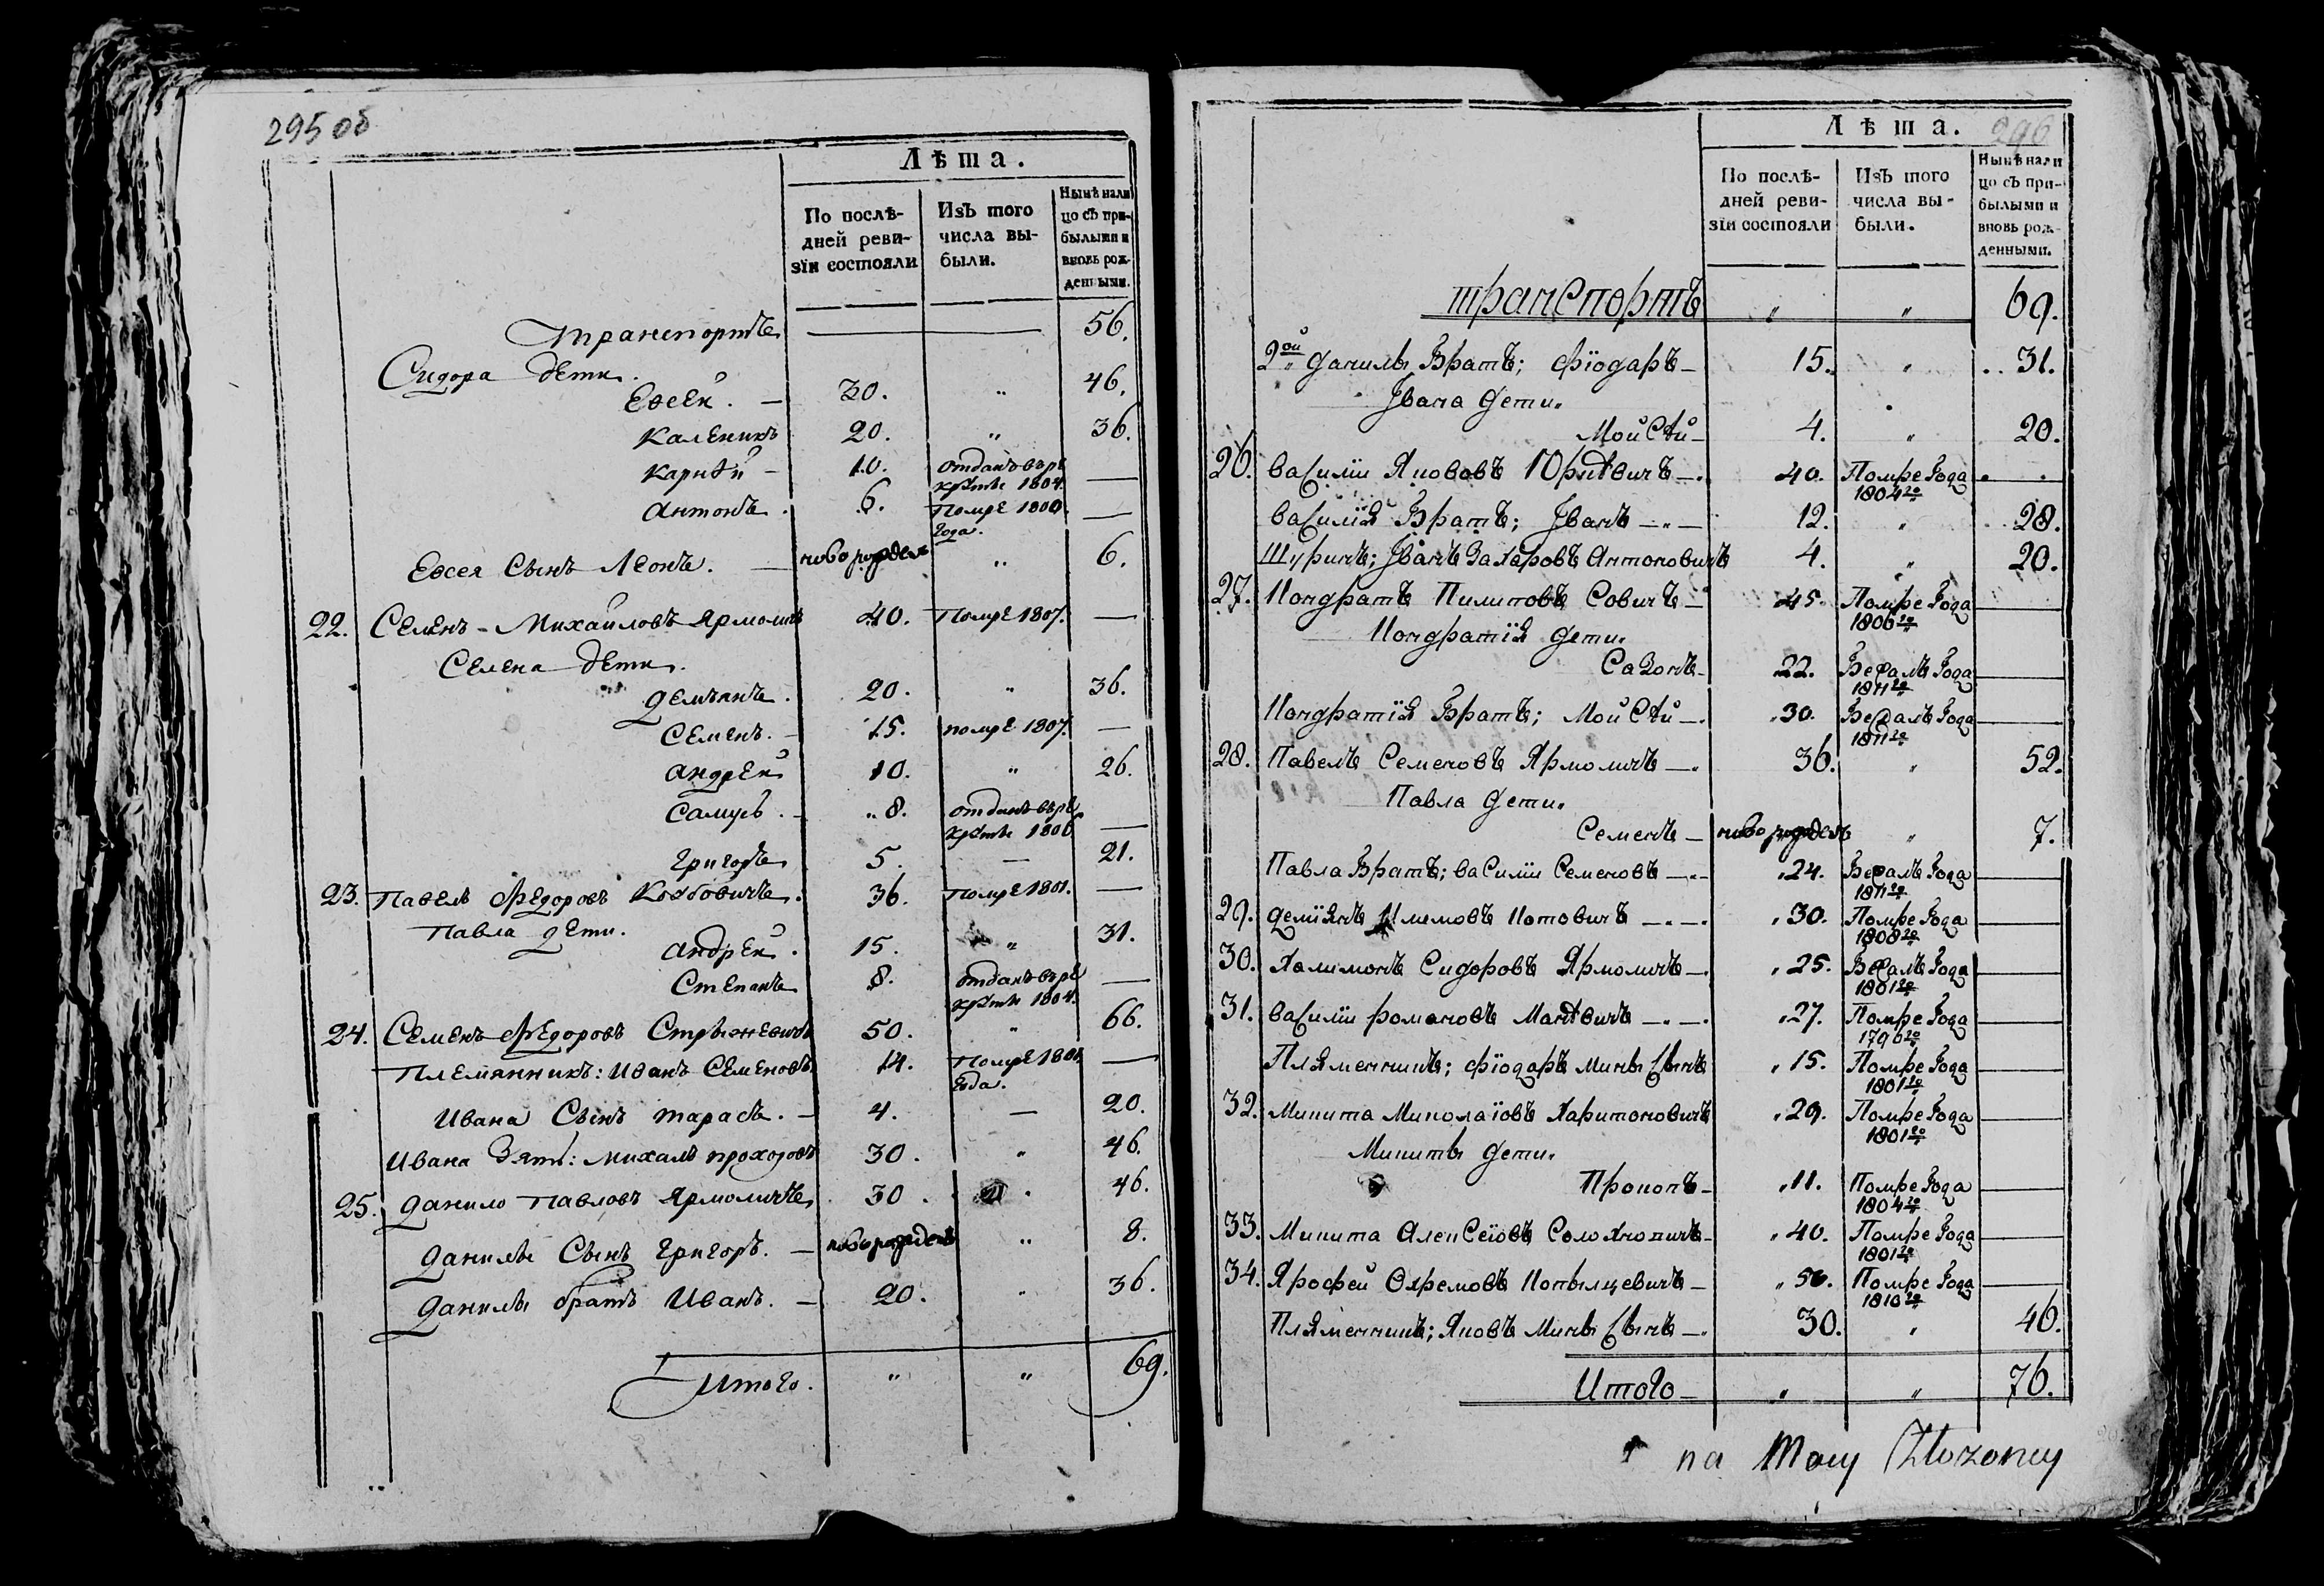 295 об
Лѣта.
По послѣдней ревизїи состояли
Изъ того числа выбыли.
Нынѣ налицо съ прибылыми и вновь рожденными.
транспортъ 56.
Сидора дети.
Евсей. 30. „ 46.
Каленикъ 20. „ 36.
Карнѣй 10. отданъ въ рекруты 1804.
Антонъ. 6. Помре 1800 года.
Евсея Сынъ Леонъ. новорожденъ „ 6.
22. Семенъ Михайловъ Ярмоличъ 40. Помре 1807.
Семена дети.
Демьянъ. 20. „ 36.
Семенъ. 15. помре 1807.
Андрей 10. „ 26.
Самусь. 8. отданъ въ рекруты 1806
Григоръ 5. 21.
23. Павелъ Федоровъ 36. Помре 1801.
Павла дети.
Андрей. 15. „ 31.
Степанъ 8. отданъ въ рекруты 1804.
24. Семенъ Федоровъ Стрыжевичъ 50. „ 66.
Племянникъ: Иванъ Семеновъ 14. Помре 1801 года.
Ивана Сынъ Тарасъ. 4. — 20.
Ивана Зять: Михалъ Прохоровъ 30. „ 46.
25. Данило Павловъ Ярмоличъ 30. „ 46.
Данилы Сынъ Григоръ. новорожденъ „ 8.
Данилы братъ Иванъ. 20. „ 36.
Итого. „ „ 69.
296
Лѣта.
По послѣдней ревизїи состояли
Изъ того числа выбыли.
Нынѣ налицо съ прибылыми и вновь рожденными.
транспортъ „ „ 69.
2ой Данилы Братъ; Фїодаръ 15. „ 31.
Івана Дети.
Мойсѣй 4. „ 20.
26. Василiи Якововъ Юрѣвичъ 40. Помре Года 1804го
Василїя Братъ; Іванъ 12. „ 28.
Шуринъ; Іванъ Захаровъ Антоновичъ 4. „ 20.
27. Кондратъ Пилиповъ Совичъ 45. Помре Года 1806го
Кондратїя Дети.
Сазонъ 22. Бежалъ Года 1811го
Кондратїя Братъ; Мойсѣй 30. Бежалъ Года 1811го
28. Павелъ Семеновъ Ярмоличъ 36. „ 52.
Павла Дети.
Семенъ новорожденъ „ 7.
Павла Братъ; Василiи Семеновъ 24. Бежалъ Года 1811го
29. Демїянъ Климовъ Котовичъ 30. Помре Года 1808го
30. Халимонъ Сидоровъ Ярмоличъ 25. Бежалъ Года 1801го
31. Василiи Романовъ Манѣвичъ 27. Помре Года 1796го
Пляменникъ; Фїодаръ Мины Сынъ 15. Помре Года 1801го
32. Микита Миколаїовъ Харитоновичъ 29. Помре Года 1801го
Микиты Дети.
Прокопъ 11. Помре Года 1804го
33. Микита Алексеїовъ 40. Помре Года 1801го
34. Ярофей Охремовъ Копылцевичъ 56. Помре Года 1810го
Пляменникъ; Яковъ Мины Сынъ 30. „ 46.
Итого „ „ 76.
na